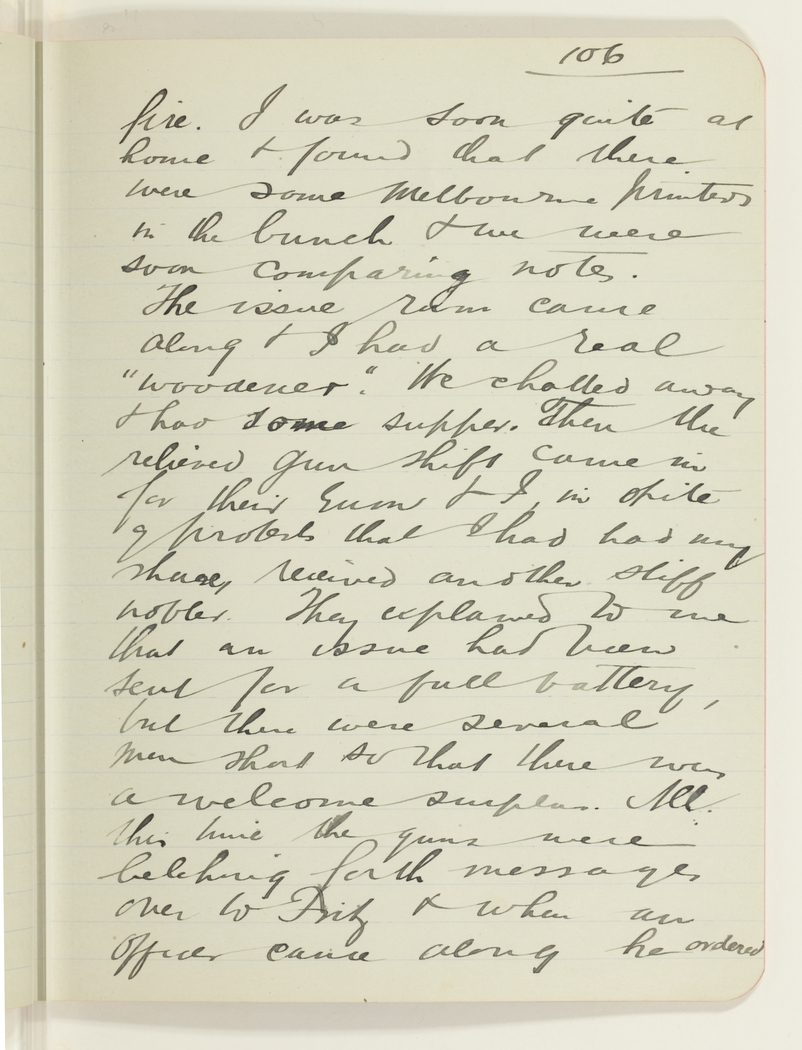 106
fire. I was soon quite at
home & found that there
were some Melbourne printers
in the bunch & we were
soon comparing notes.
The issue rum came
along & I had a real
"woodener". We chatted away
& had some supper. Then the
relieved gun shift came in
for their rum & I, in spite
of protests that I had had my
share, received another stiff
nobler. They explained to me
that an issue had been
sent for a full battery,
but there were several
men short so that there was
a welcome surplus. All
this time the guns were
belching forth messages
over to Fritz & when an
officer came along he ordered